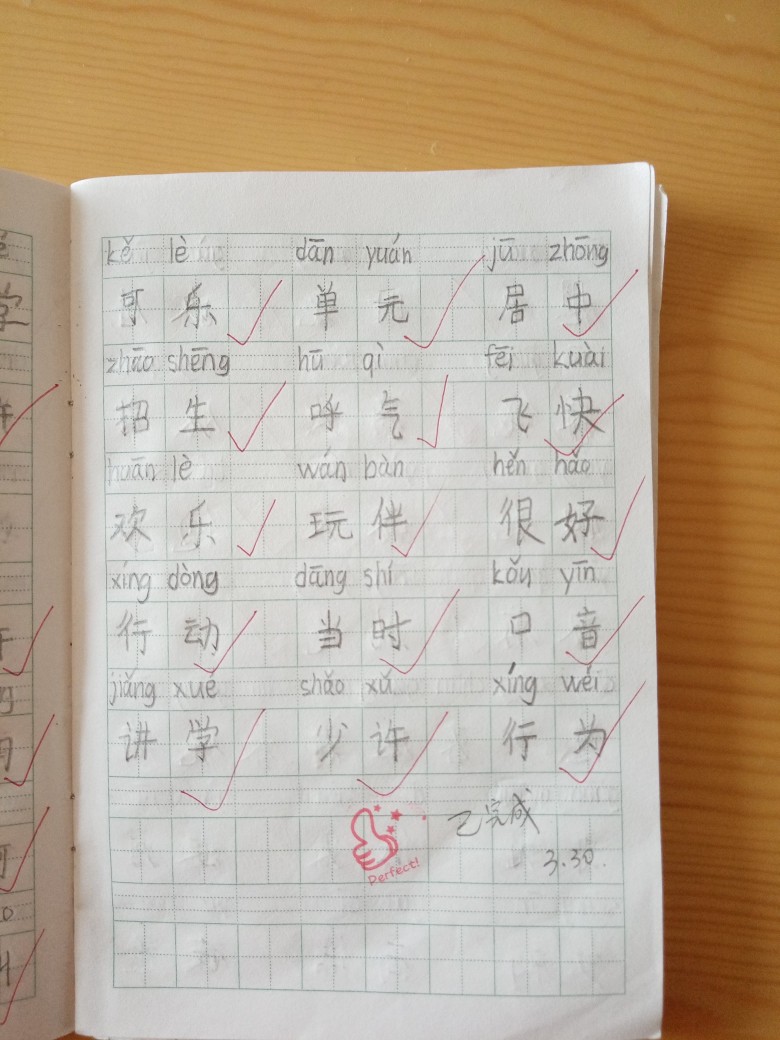 kě lè dān yuán jū zhōng
可 乐 单 元 居 中
zhāo shēng hū qì fēi kuài
招 生 呼 气 飞 快
huān lè wán bàn hěn hǎo
欢 乐 玩 伴 很 好
xíng dòng dāng shí kǒu yīn
行 动 当 时 口 音
jiǎng xué shǎo xǔ xíng wéi
讲 学 少 许 行 为
已完成
Perfect!
3.30.